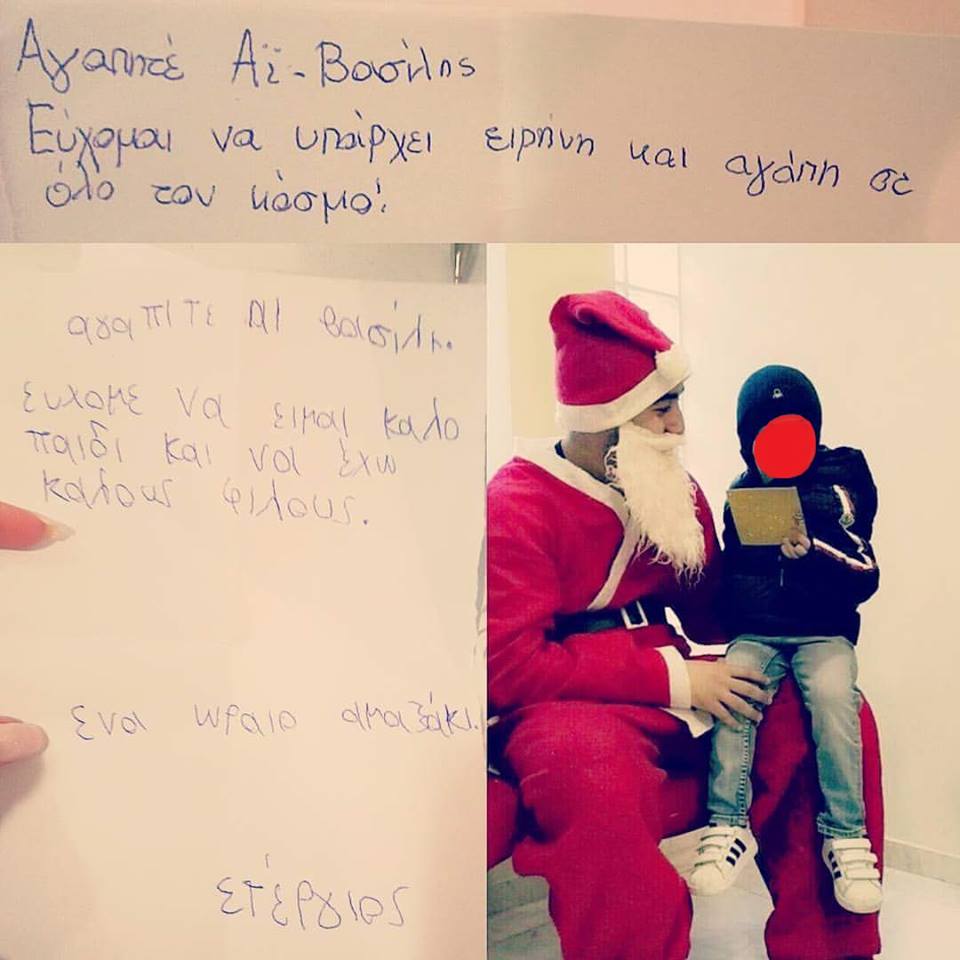 Αγαπητέ Αϊ-Βασίλης
Εύχομαι να υπάρχει ειρήνη και αγάπη σε
όλο τον κόσμο!
αγαπιτε αι βασιλη.
ευχομε να ειμαι καλο
παιδι και να έχω
καλους φιλους.
ενα ωραιο αμαξάκι.
Στέργιος